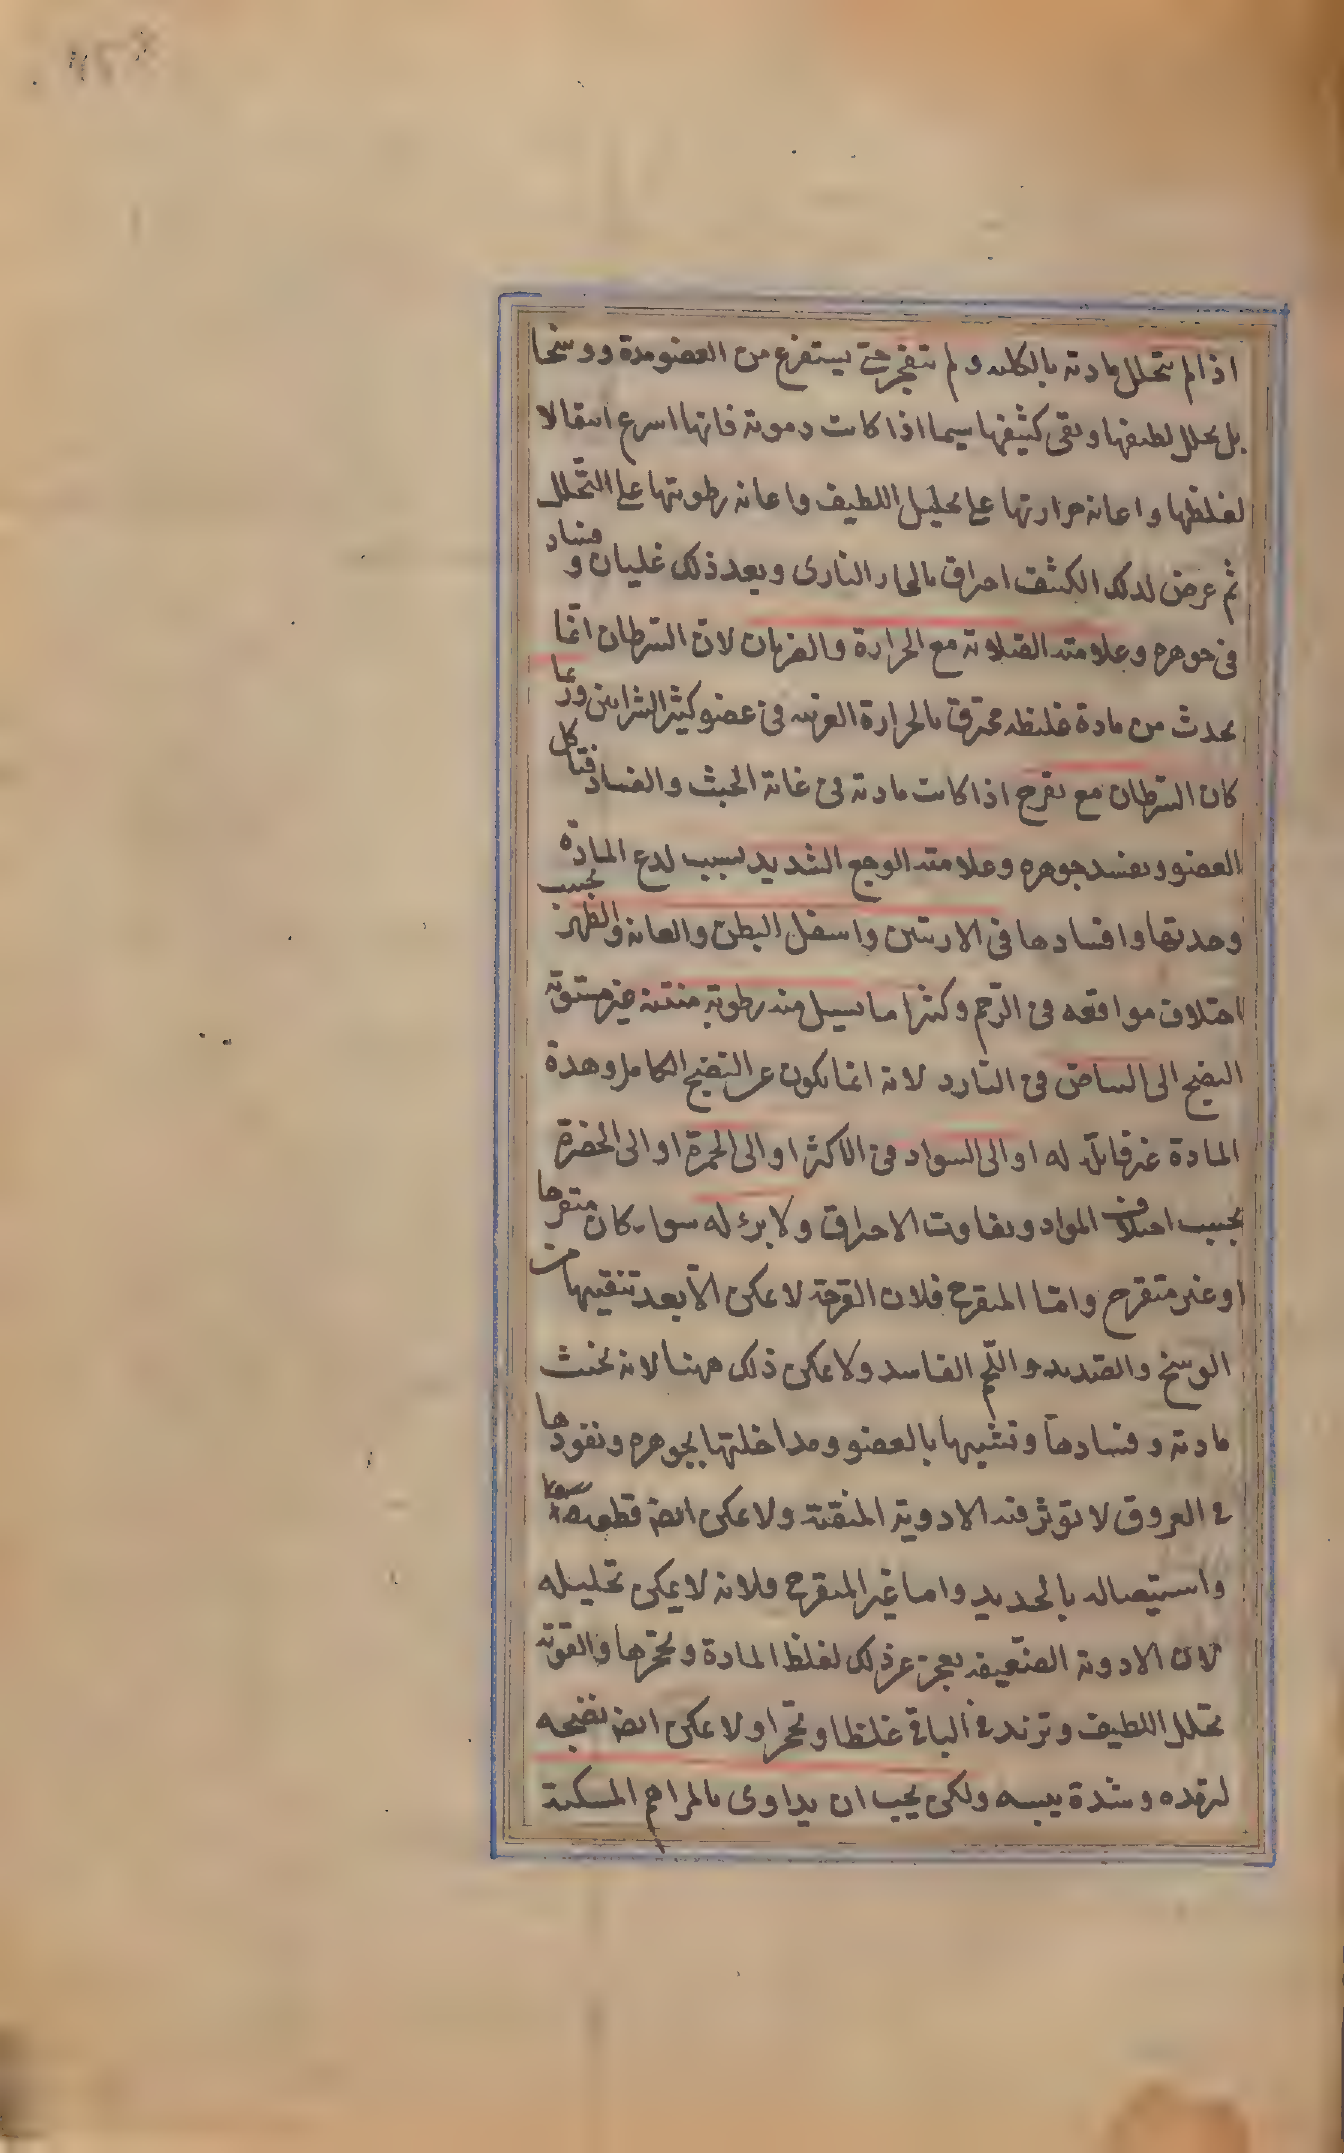 اذا لم يتحلل مادته بالكلية ولم تنفجر حتى يستفرغ من العضو مدة ووسخا
بل يحلل لطيفها وبقى كثيفها سيما اذا كانت دموية فانها اسرع انتقالا
لغلظها واعانة حرارتها على تحليل اللطيف واعانة رطوبتها على التحلل
ثم عرض لذلك الكثيف احراق بالحار النارى وبعد ذلك غليان وفساد
فى جوهره وعلامته الصلابة مع الحرارة والضربان لان السرطان انما
يحدث من مادة غليظة محترقة بالحرارة الغريبة فى عضو كثير الشرايين وربما
كان السرطان مع تقرح اذا كانت مادته فى غاية الخبث والفساد فتأكل
العضو ويفسد جوهره وعلامته الوجع الشديد بسبب لذع المادة
وحدتها وافسادها فى الاربيتين واسفل البطن والعانة والظهر بحسب
اختلاف مواقعه فى الرحم وكثيرا ما يسيل منه رطوبة منتنة غير مستوية
النضج الى البياض فى النادر لانه انما يكون عن النضج الكامل وهذة
المادة غير قابلة له او الى السواد فى الاكثر او الى الحمرة او الى الخضرة
بحسب اختلاف المواد وتفاوت الاحراق ولا برء له سواء كان متقرحا
او غير متقرح واما المتقرح فلان القرحة لا يمكن الا بعد تنقيتها من
الوسخ والصديد واللحم الفاسد ولا يمكن ذلك ههنا لانه لخبث
مادته وفسادها وتشبثها بالعضو ومداخلتها بجوهره ونفوذها
فى العروق لا تؤثر فيه الادوية المنقية ولا يمكن ايضا قطعه
واستيصاله بالحديد واما غير المتقرح فلانه لا يمكن تحليله
لان الادوية الضعيفة يعجز عن ذلك لغلظ المادة وتحجرها والقوية
تحلل اللطيف وتزيد فى الباقى غلظا وتحجرا ولا يمكن ايضا نضجه
لبرده وشدة يبسه ولكن يجب ان يداوى بالمراهم المسكنة